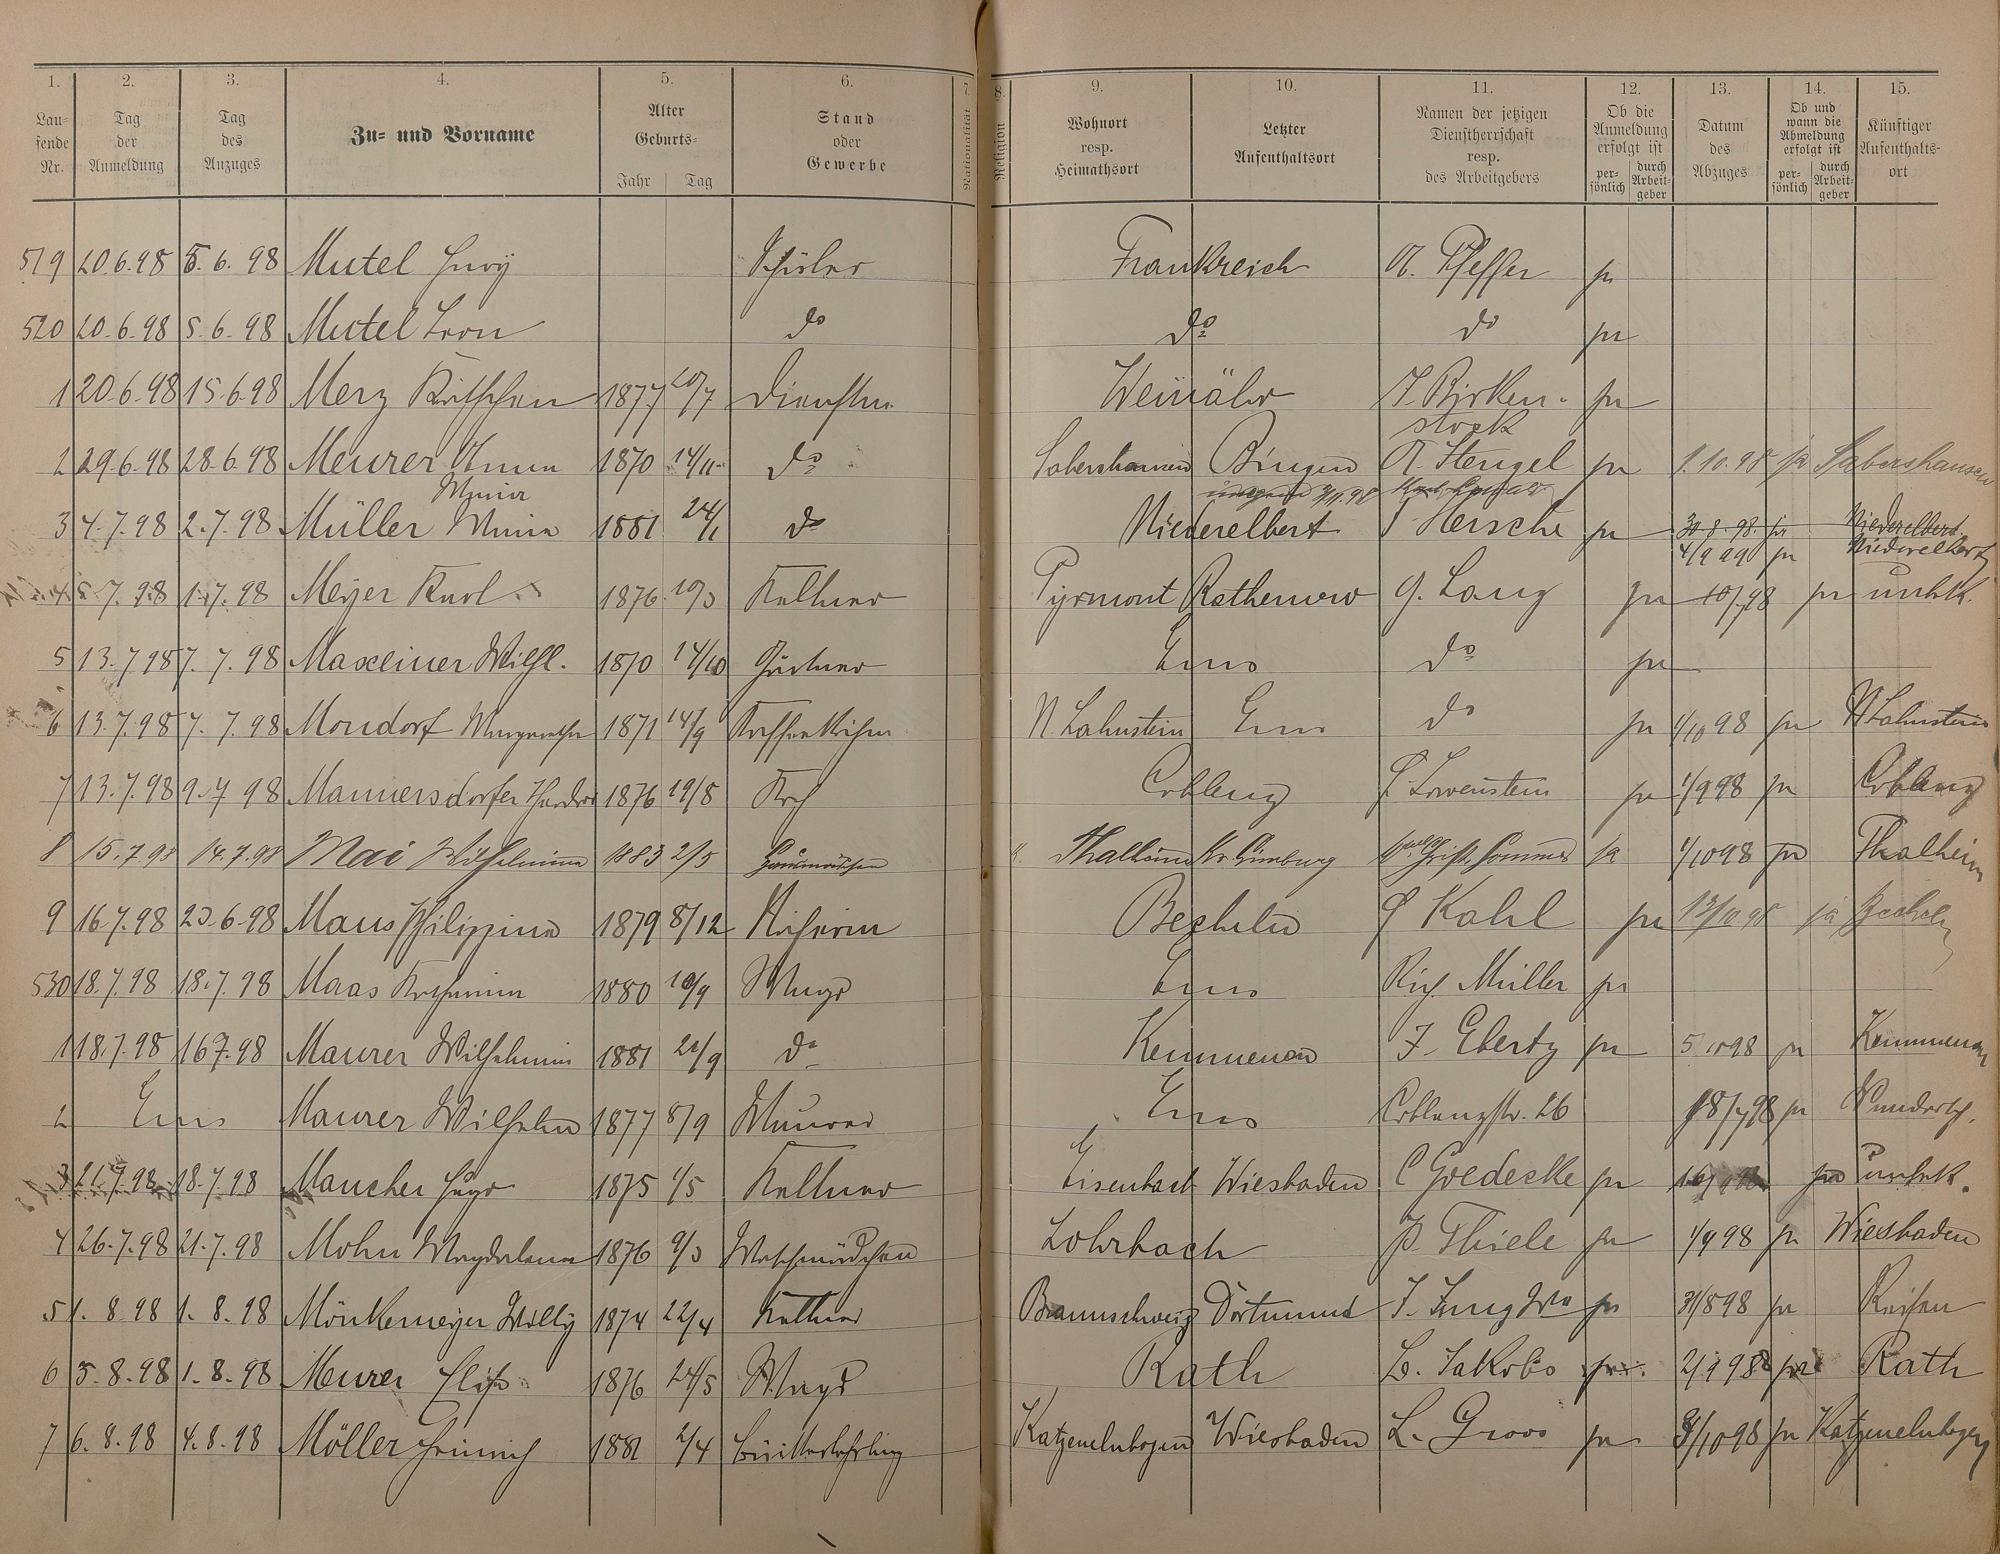 1. 2. 3. 4. 5. 6. 7. 8. 9. 10. 11. 12. 13. 14. 15.
Laufende Nr. Tag der Anmeldung Tag des Anzuges Zu- und Vorname Alter Geburts- Jahr Tag Stand oder Gewerbe Nationalität Religion Wohnort resp. Heimathsort Letzter Aufenthaltsort Namen der jetzigen Dienstherrschaft resp. des Arbeitgebers Ob die Anmeldung erfolgt ist persönlich durch Arbeitgeber Datum des Abzuges Ob und wann die Abmeldung erfolgt ist persönlich durch Arbeitgeber Künftiger Aufenthaltsort
519 20.6.98 5.6.98 Mutel Schüler Frankreich A. Pfeffer ja
520 20.6.98 5.6.98 Mutel Leon do do do ja
1 20.6.98 15.6.98 Merz Kätchen 1877 20/7 Dienstm. Weinähr J. Birkenstock ja
2 29.6.98 28.6.98 Meurer Anna 1870 14/11 do Sabershausen Bingen A. Stengel ja 1.10.98 ja Sabershausen
3 4.7.98 2.7.98 Müller Minna 1881 24/1 do Niederelbert Hersche ja 30.8.98 ja Niederelbert
Niederelbert
4 5.7.98 1.7.98 Meyer Karl 1876 10/3 Kellner Pyrmont Rathenow G. Lang ja 10/7 98 ja unbk.
5 13.7.98 7.7.98 Maxeiner Wilh. 1870 14/10 Gärtner Ems do ja
6 13.7.98 7.7.98 Mondorf Margarethe 1871 14/9 Kaffeeköchin N. Lahnstein Ems do ja 1/10 98 ja N. Lahnstein
7 13.7.98 9.7.98 Mannersdorfer 1876 19/8 Koch Coblenz Löwenstein ja 1/9 98 ja Coblenz
8 15.7.98 14.7.98 Mai Wilhelmine 1883 2/5 Hausmädchen Thalheim Kr. Limburg ja 1/10 98 ja Thalheim
9 16.7.98 23.6.98 Maus Philippine 1879 8/12 Näherin Becheln Kahl ja 13/10 98 ja Becheln
530 18.7.98 18.7.98 Maas Katharina 1880 10/9 Magd Ems Rich. Müller ja
1 18.7.98 16.7.98 Maurer Wilhelmine 1881 21/9 do Kemmenau J. Ebertz ja 5 10 98 ja Kemmenau
2 Ems Maurer Wilhelm 1877 8/9 Maurer Ems Coblenzstr. 26 18/7 98 ja Wandersch.
3 21.7.98 18.7.98 Maucher Hugo 1875 1/5 Kellner Eisenbach Wiesbaden C Goedecke ja ja unbek.
4 26.7.98 21.7.98 Mohn Magdalena 1876 9/3 Waschmädchen Lohrbach P. Thiele ja 1/9 98 ja Wiesbaden
5 1.8.98 1.8.98 Mönkemeyer Willy 1874 22/4 Kellner Braunschweig Dortmund J. Jung Ww ja 31/8 98 ja Reisen
6 5.8.98 1.8.98 Meurer Elise 1876 24/5 Magd Rath L. Jakobs ja 2/9 98 ja Rath
7 6.8.98 4.8.98 Möller Heinrich 1881 2/4 Katzenelnbogen Wiesbaden L. Groos ja 3/10 98 ja Katzenelnbogen